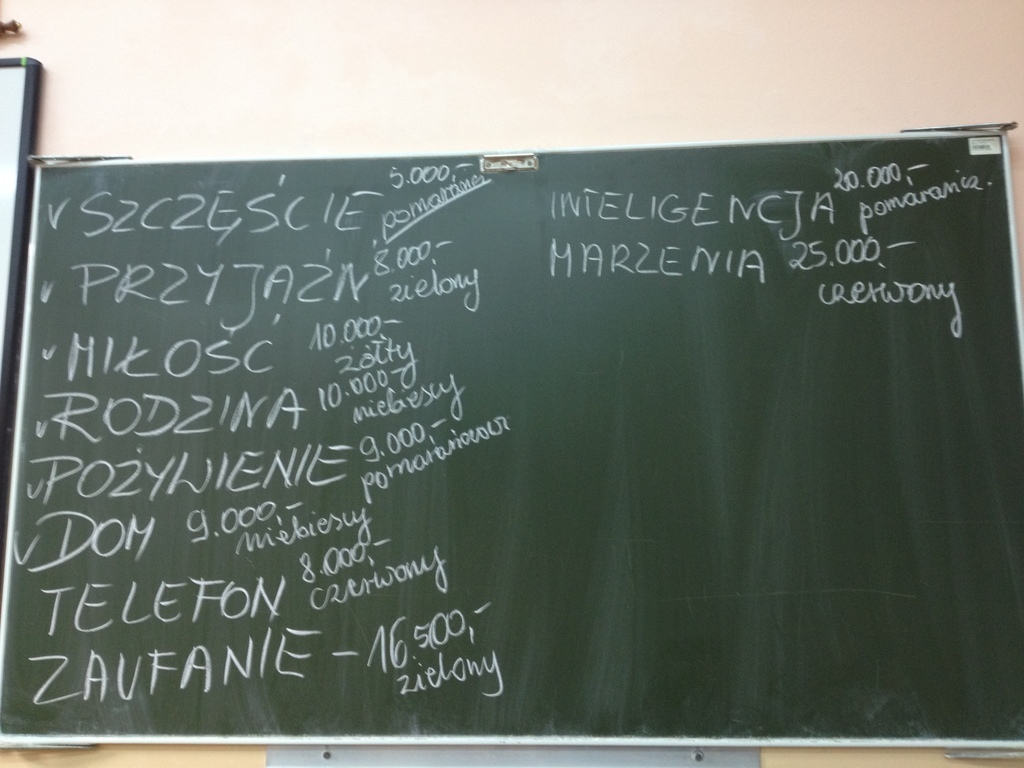 ✓ SZCZĘŚCIE 5.000,-
✓ PRZYJAŹŃ 8.000,-
zielony
✓ MIŁOŚĆ 10.000,-
żółty
✓ RODZINA 10.000,-
niebiescy
✓ POŻYWIENIE 9.000,-
✓ DOM 9.000,-
niebiescy
TELEFON 8.000,-
czerwony
ZAUFANIE – 16 500,-
zielony
INTELIGENCJA 20.000,-
pomarańcz.
MARZENIA 25.000,-
czerwony